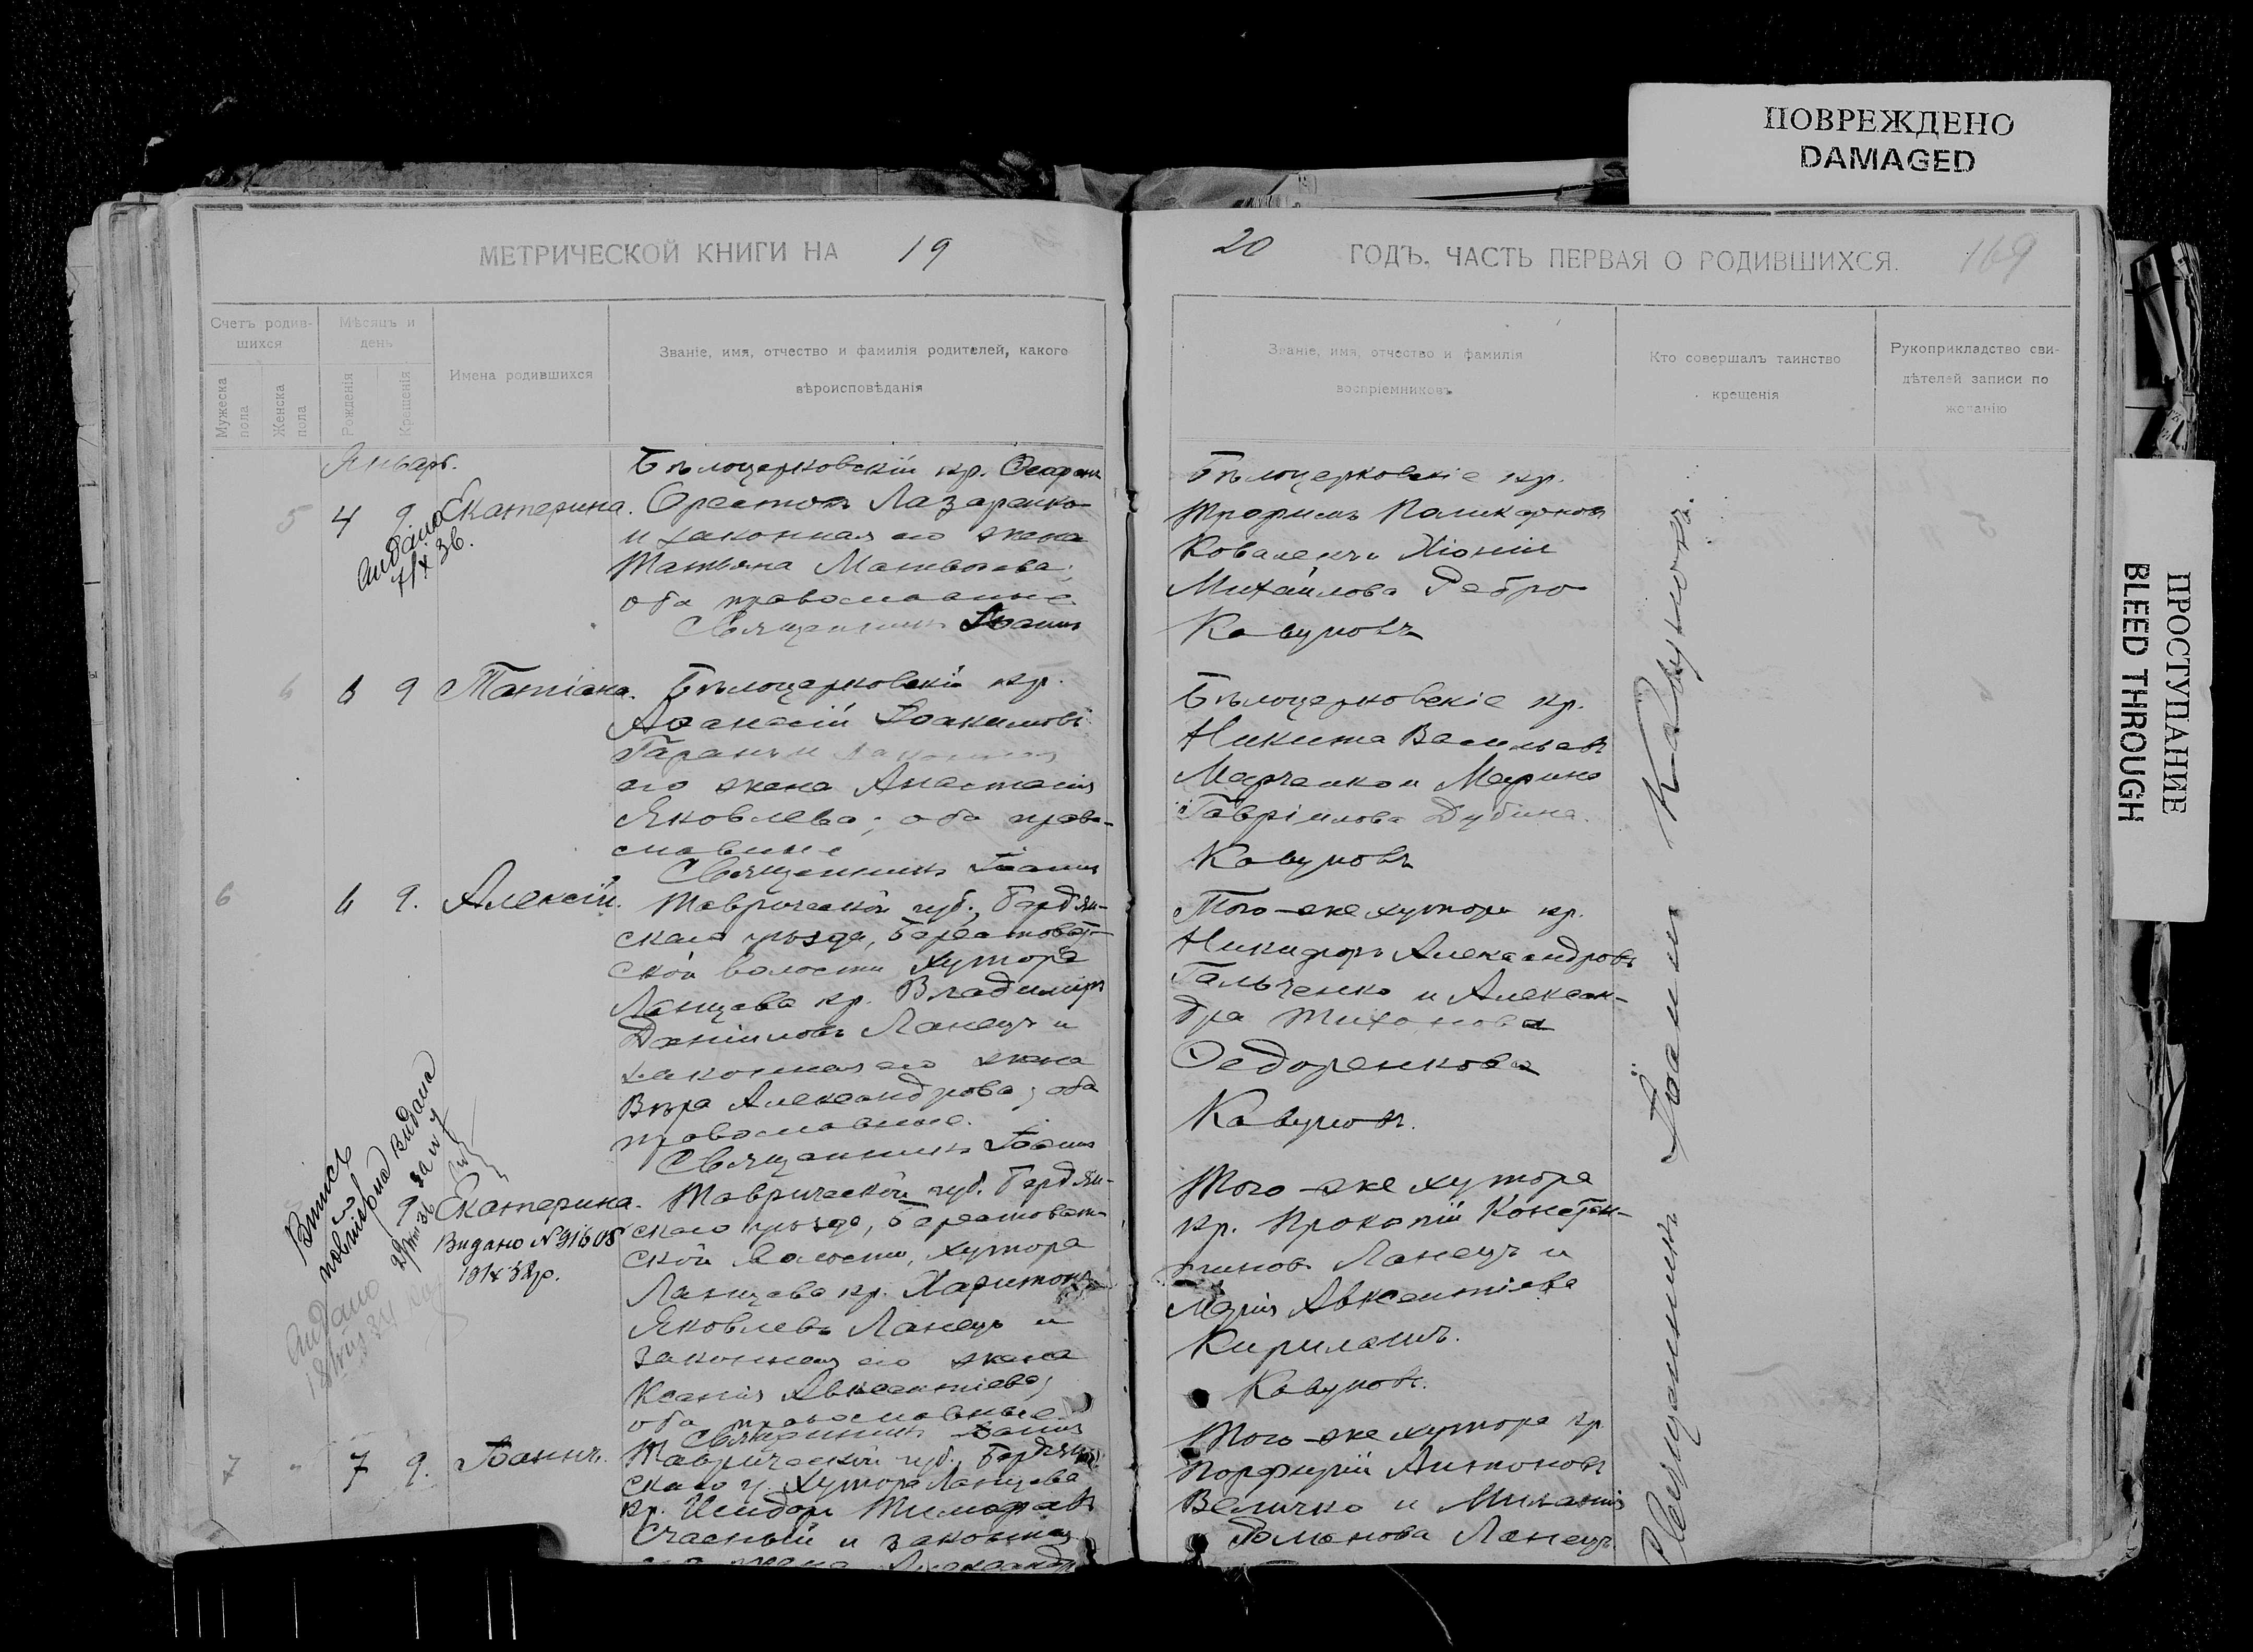 ПОВРЕЖДЕНО
DAMAGED
ПРОСТУПАНИЕ
BLEED THROUGH
МЕТРИЧЕСКОЙ КНИГИ НА 19
20 ГОДЪ, ЧАСТЬ ПЕРВАЯ О РОДИВШИХСЯ. 169
Счетъ родив-
шихся
Мужеска пола
Женска пола
Мѣсяцъ и
день
Рожденія
Крещенія
Имена родившихся
Званіе, имя, отчество и фамилія родителей, какого
вѣроисповѣданія
Званіе, имя, отчество и фамилія
воспріемниковъ
Кто совершалъ таинство
крещенія
Рукоприкладство сви-
дѣтелей записи по
желанію
Январь.
5 4 9 Екатерина.
Бѣлоцерковскій кр.
Орестовъ Лазаренко
и законная его жена
Татьяна Матвѣева;
оба православные
Священникъ Іоаннъ
Бѣлоцерковскіе кр.
Трофимъ Поликарповъ
Михайлова Ребро
Кавуновъ
6 6 9 Татіана.
Бѣлоцерковскій кр.
Аѳанасій Іоакимовъ
его жена Анастасія
Яковлева; оба право-
славные
Священникъ Іоаннъ
Бѣлоцерковскіе кр.
Никита Васильевъ
Марченко и Марина
Гавріилова Дубина.
Кавуновъ
6 6 9. Алексій.
Таврической губ., Бердян-
скаго уѣзда, Берестоват-
ской волости хутора
Ланцева кр. Владимиръ
Даніиловъ Ланецъ и
законная его жена
Вѣра Александрова; оба
православные.
Священникъ Іоаннъ
Того-же хутора кр.
Никифоръ Александровъ
Гальченко и Алексан-
дра Тихонова
Федоренкова
Кавуновъ.
9 Екатерина.
Видано N 91608
Таврической губ. Бердян-
скаго уѣзда, Берестоват-
ской волости, хутора
Ланцева кр. Харитонъ
Яковлевъ Ланецъ и
законная его жена
Ксенія Авксентіева;
оба православные.
Священникъ Іоаннъ
Того-же хутора
кр. Прокопій Констан-
тиновъ Ланецъ и
Марія Авксентіева
Кавуновъ.
7 " 7 9. Іоаннъ.
Таврической губ., Бердян-
скаго у. Хутора Ланцева
кр. Исидоръ Тимофеевъ
Счасный и законная
его жена Александр
Того-же хутора кр.
Порфирій Антоновъ
Величко и Миланія
Романова Ланецъ
Священникъ Іоаннъ Кавуновъ.